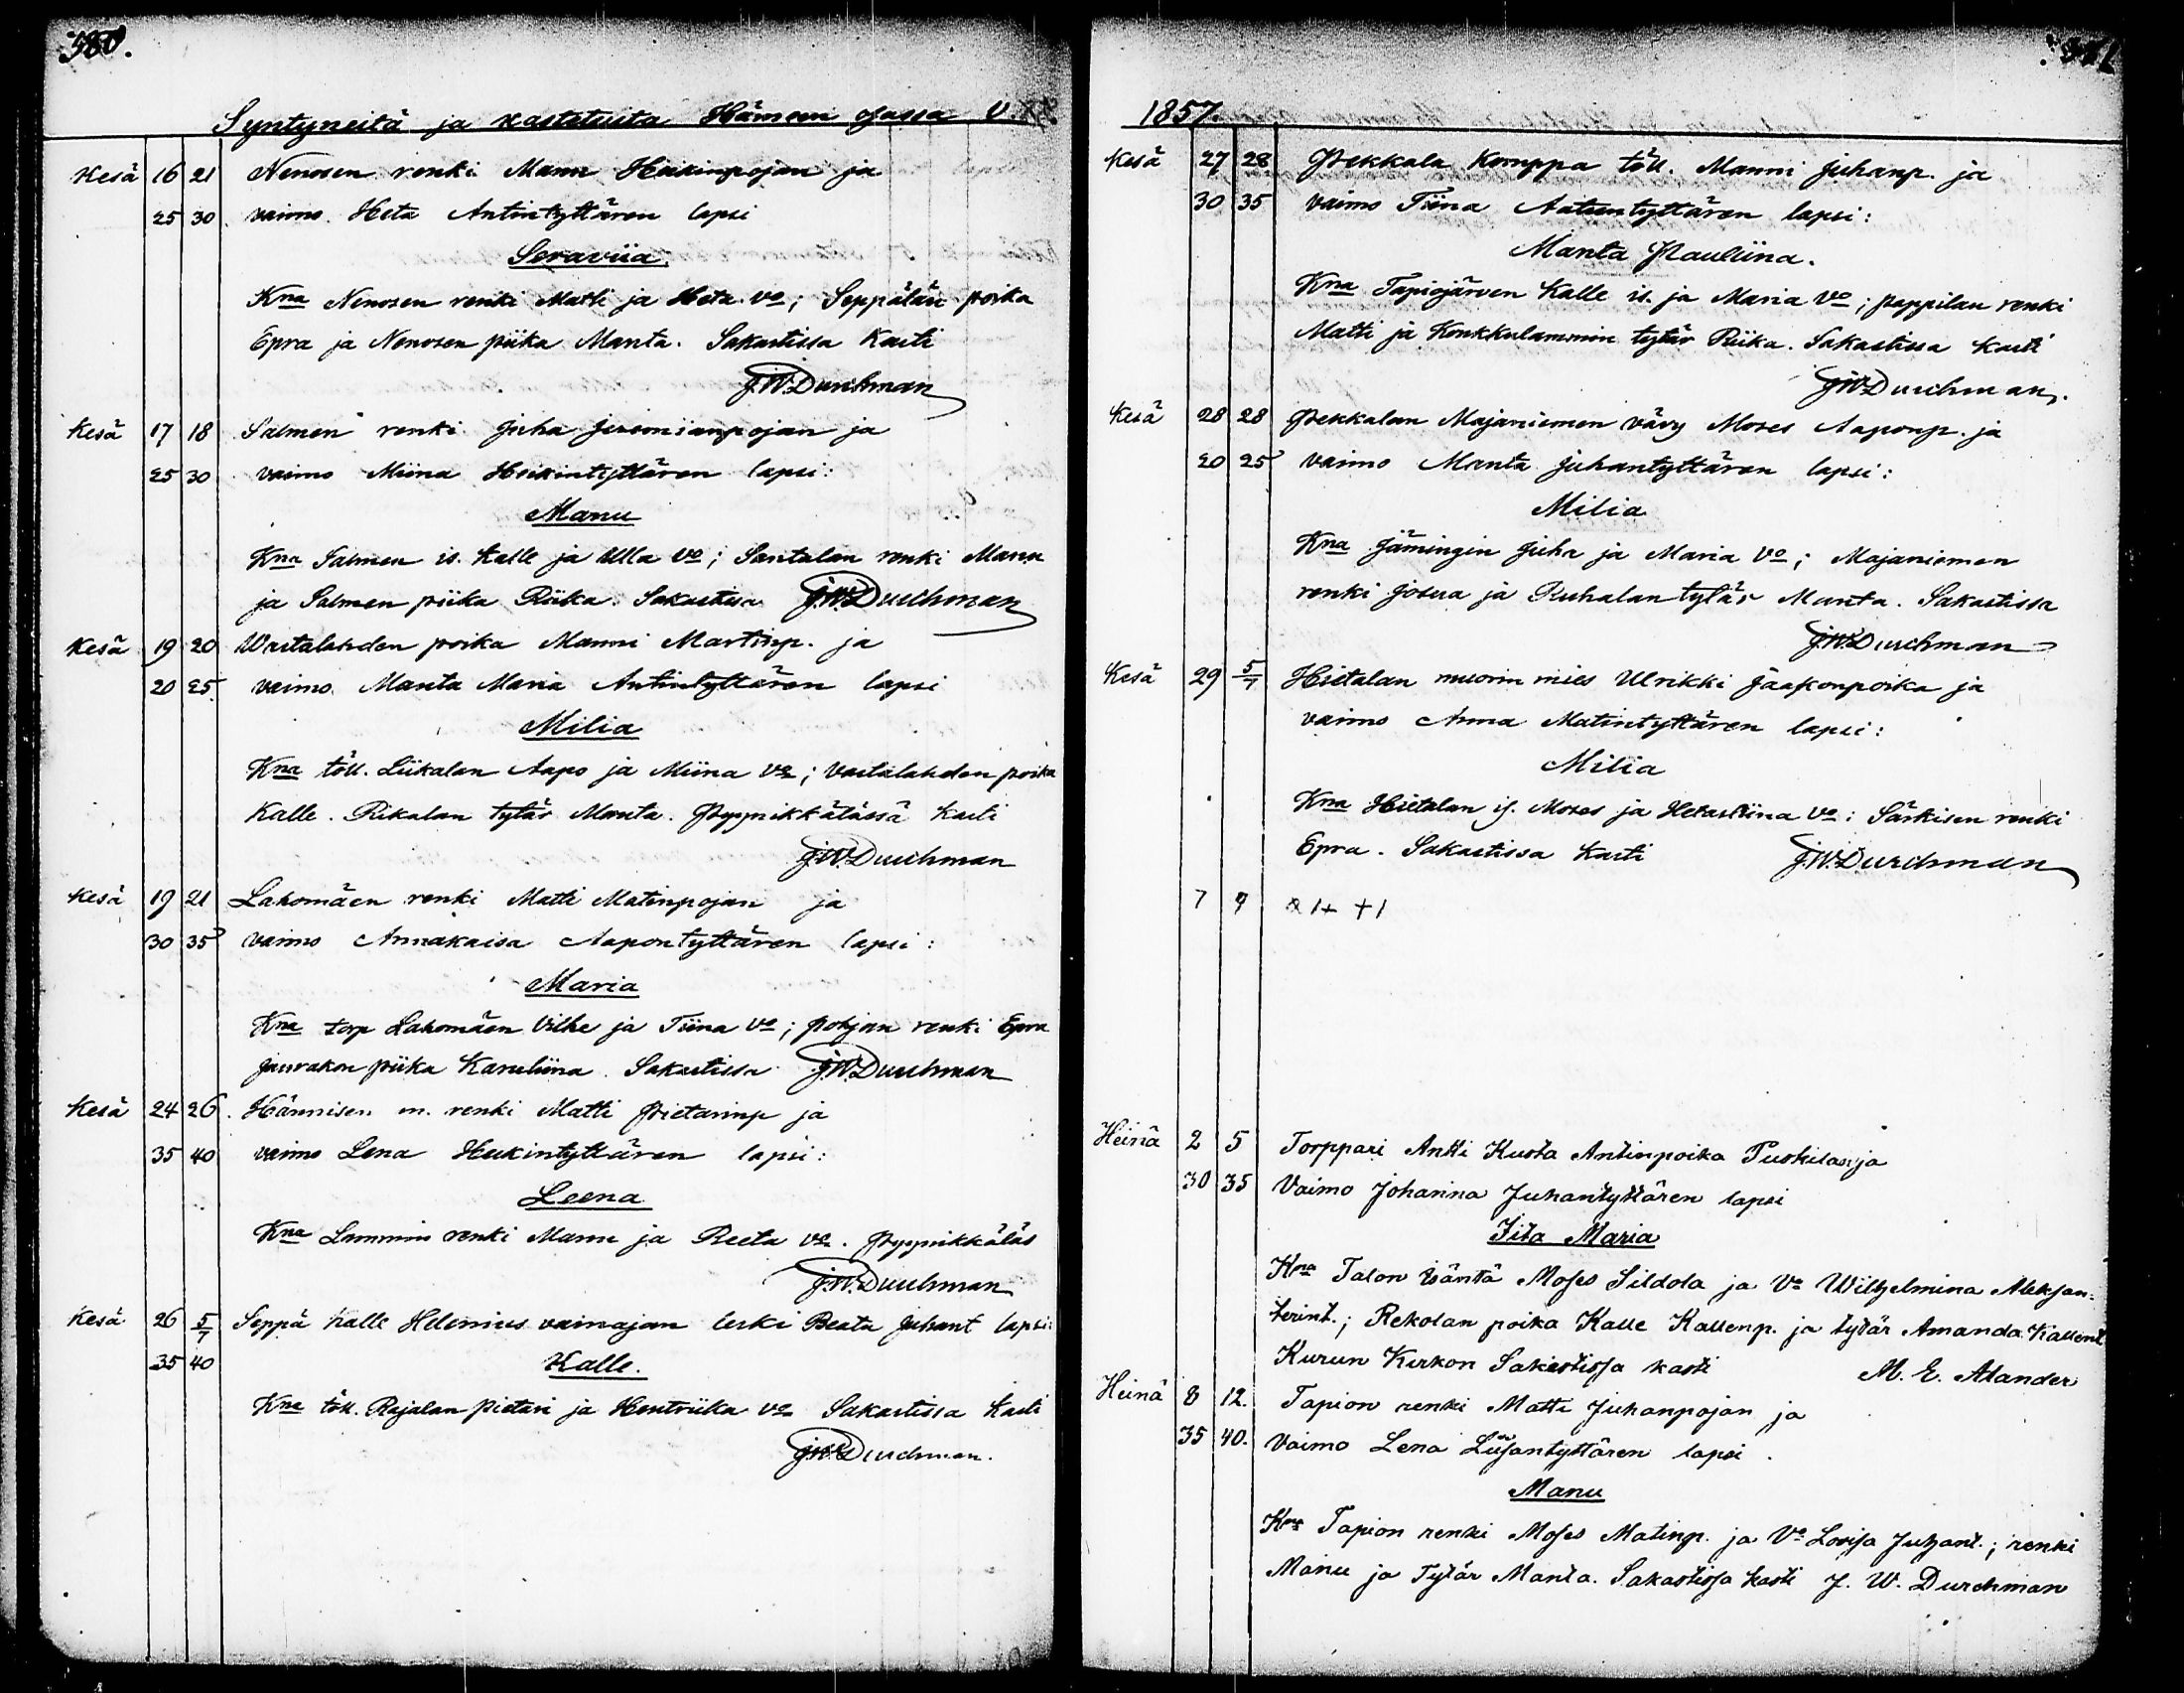 380.
Syntyneitä ja kastetuita Hämeen osassa V.
Kesä 16 21 Nenosen renki Manu Heikinpojan ja
25 30 vaimo Heta Antintyttären lapsi
Seraviia
Kna Nenosen renki Matti ja Heta vo; Seppälän poika
Epra ja Nenosen piika Manta. Sakastissa Kasti
J.W.Durchman
Kesä 17 18 Salmen renki Juha Jeremianpojan ja
25 30 vaimo Miina Heikintyttären lapsi:
Manu
Kna Salmen is. Kalle ja Ulla vo; Santalan renki Manu
ja Salmen piika Riika. Sakastissa J.W.Durchman
Kesä 19 20 Vastalahden poika Manni Martinp. ja
20 25 vaimo Manta Maria Antintyttären lapsi
Milia
Kna töll. Liikalan Aapo ja Miina vo; Vastalahden poika
Kalle. Rikalan tytär Manta. Pyynikkälässä kasti
J.W.Durchman
Kesä 19 21 Lahomäen renki Matti Matinpojan ja
30 35 vaimo Annakaisa Aapontyttären lapsi:
Maria
Kna torp Lahomäen Vilhe ja Tiina vo; pohjan renki Epra
Jaurakon piika Karuliina. Sakastissa J.W.Durchman
Kesä 24 26. Hännisen m. renki Matti Pietarinp ja
35 40 vaimo Lena Heikintyttären lapsi:
Leena
Kna Lammin renki Manu ja Reeta vo. Pyynikkäläs
J.W.Durchman
Kesä 26 5/7 Seppä Kalle Helenius vainajan leski Beata Juhant lapsi:
35 40 Kalle.
Kna töll. Rajalan Pietari ja Hentriika vo Sakastissa kasti
J.W.Durchman.
1857.
Kesä 27 28 Pekkala Komppa töll. Manni Juhanp. ja
30 35 vaimo Tiina Aatuntyttären lapsi:
Manta Pauliina.
Kna Tapiojärven Kalle is. ja Maria vo; pappilan renki
Matti ja Konkkulammin tytär Riika. Sakastissa kasti
J.W.Durchman.
Kesä 28 28 Pekkalan Majaniemen vävy Moses Aaponp. ja
20 25 vaimo Manta Juhantyttären lapsi:
Milia
Kna Jämingin Juha ja Maria vo; Majaniemen
renki Josua ja Ruhalan tytär Manta. Sakastissa
J.W.Durchman
Kesä 29 5/7 Hietalan nuorin mies Ulrikki Jaakonpoika ja
vaimo Anna Matintyttären lapsi:
Milia
Kna Hietalan is. Moses ja Hetastiina vo; Särkisen renki
Epra. Sakastissa Kasti J.W.Durchman
7
Heinä 2 5 Torppari Antti Kusta Antinpoika Puskilan ja
30 35 Vaimo Johanna Juhantyttären lapsi
Iita Maria
Kna Talon isäntä Moses Sildola ja Vo Wilhelmina Aleksan-
terint.; Rekolan poika Kalle Kallenp. ja tytär Amanda Kallent
Kurun Kirkon Sakastissa kasti M. E. Alander
Heinä 8 12. Tapion renki Matti Juhanpojan ja
35 40. Vaimo Lena Liisantyttären lapsi.
Manu
Kna Tapion renki Moses Matinp. ja Vo Lovisa Juhant.; renki
Manu ja Tytär Manta. Sakastissa kasti J. W. Durchman